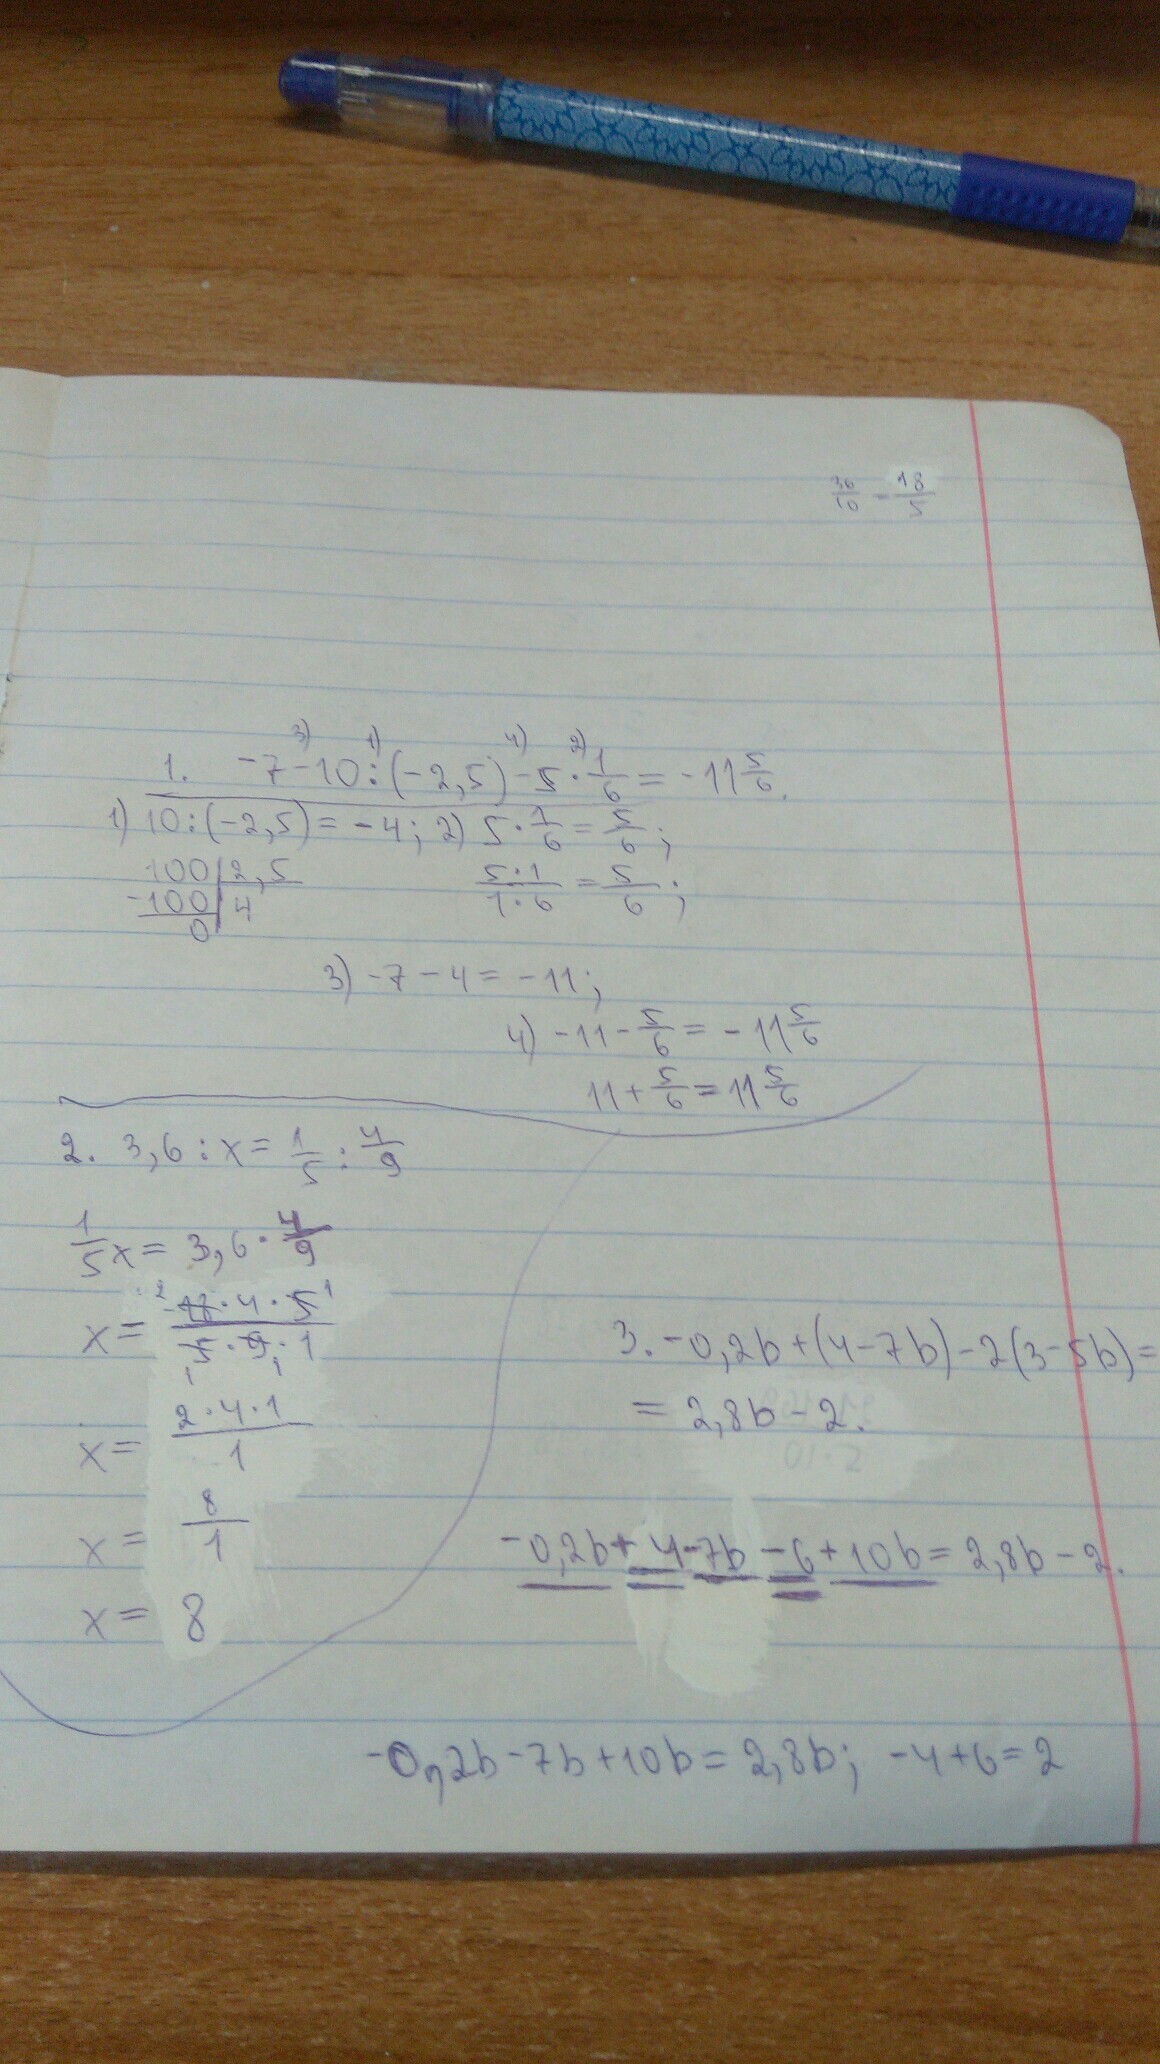 36/10 = 18/5
3) 1) 4) 2)
1. -7-10:(-2,5)-5·1/6=-11 5/6.
1) 10:(-2,5)=-4; 2) 5·1/6=5/6;
100|2,5 5·1/1·6=5/6;
-100|4
0
3) -7-4=-11;
4) -11-5/6=-11 5/6
11+5/6=11 5/6
2. 3,6:x=1/5:4/9
1/5x=3,6·4/9
x= 2 18·4·5 1/5·9·1
1 1
x= 2·4·1/1
x= 8/1
x= 8
3. -0,2b+(4-7b)-2(3-5b)=
= 2,8b-2.
-0,2b+4-7b-6+10b=2,8b-2.
-0,2b-7b+10b=2,8b; -4+6=2